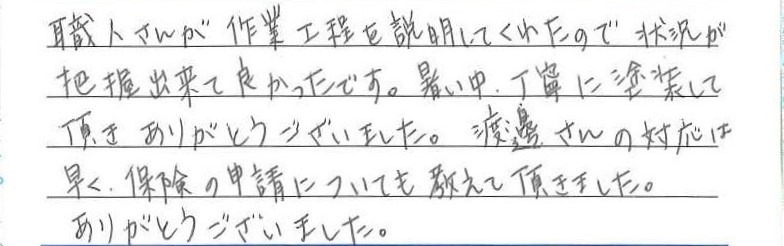 職人さんが 作業工程を説明してくれたので 状況が
把握出来て良かったです。暑い中、丁寧に塗装して
頂き ありがとうございました。 渡邊さんの対応は
早く、保険の申請についても教えて頂きました。
ありがとうございました。